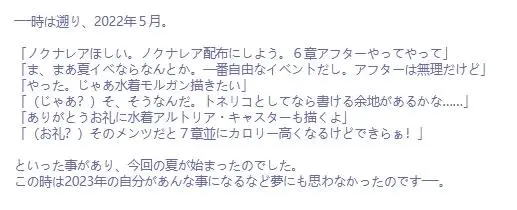 ──時は遡り、2022年５月。
「ノクナレアほしい。ノクナレア配布にしよう。６章アフターやってやって」
「ま、まあ夏イベならなんとか。一番自由なイベントだし。アフターは無理だけど」
「やった。じゃあ水着モルガン描きたい」
「（じゃあ？）そ、そうなんだ。トネリコとしてなら書ける余地があるかな……」
「ありがとうお礼に水着アルトリア・キャスターも描くよ」
「（お礼？）そのメンツだと７章並にカロリー高くなるけどできらぁ！」
といった事があり、今回の夏が始まったのでした。
この時は2023年の自分があんな事になるなど夢にも思わなかったのです──。